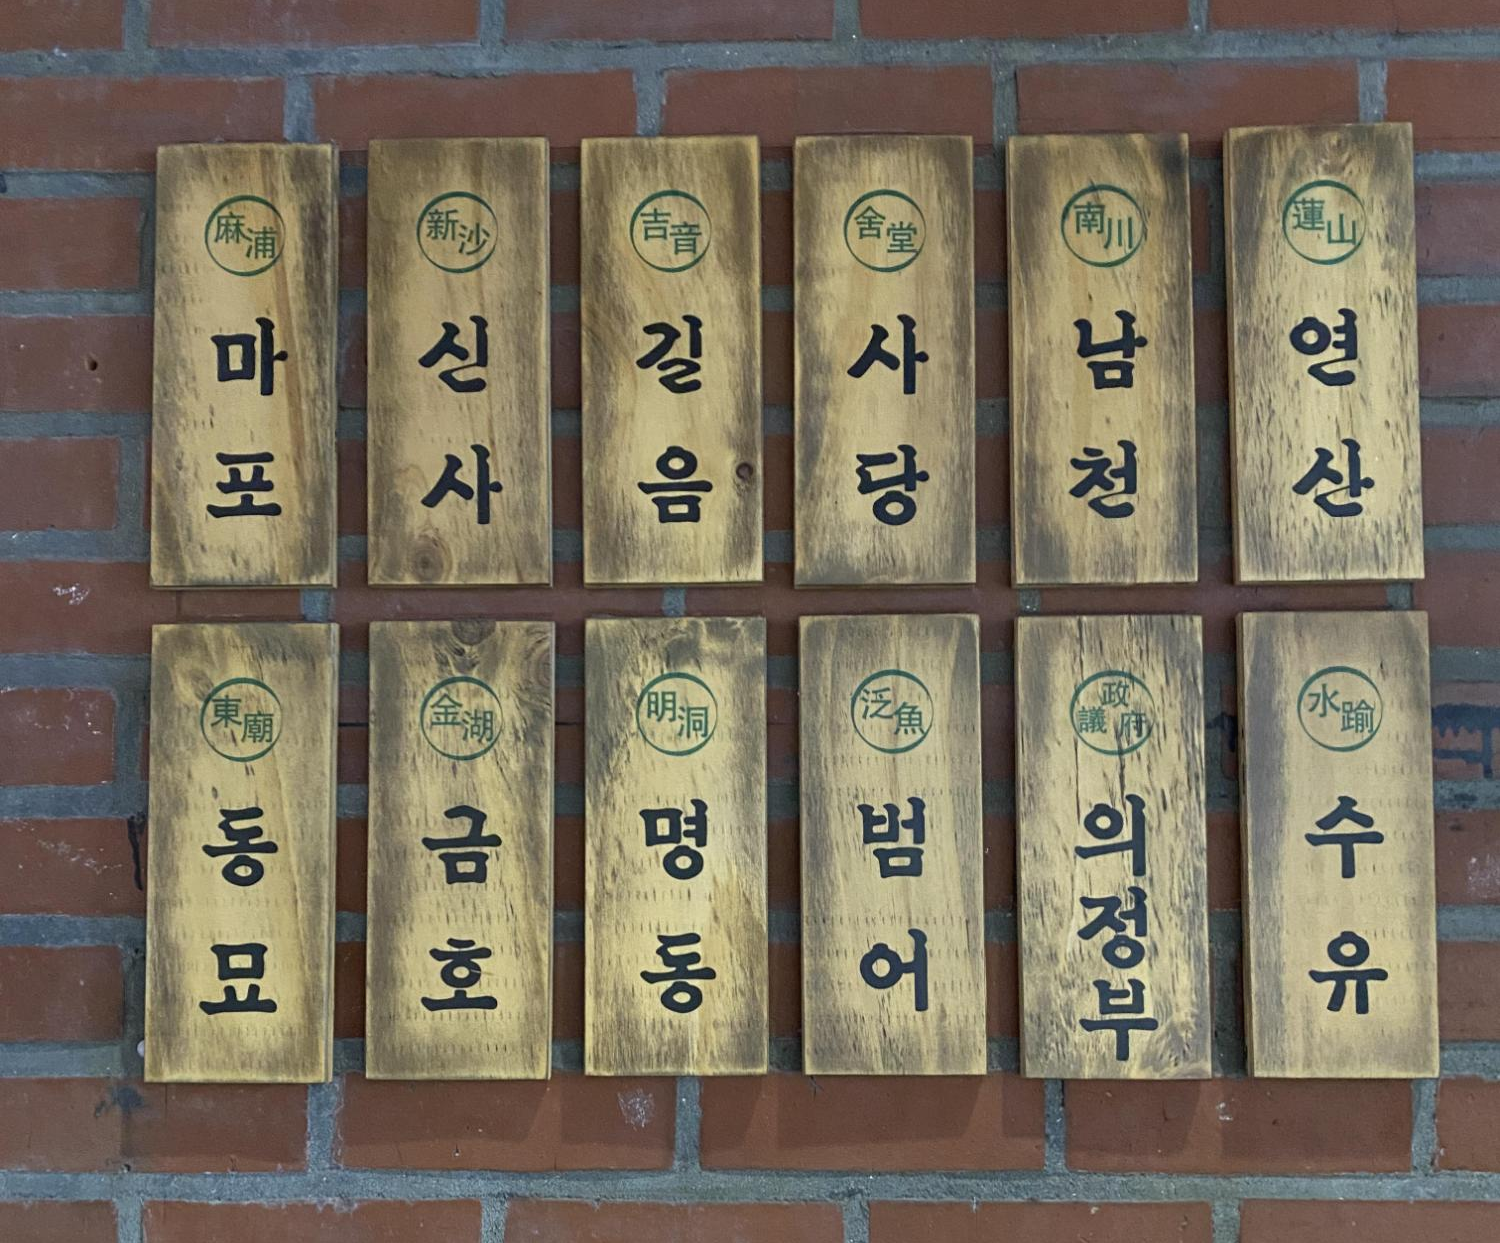 麻浦
마포
新沙
신사
吉音
길음
舍堂
사당
南川
남천
蓮山
연산
東廟
동묘
金湖
금호
明洞
명동
泛魚
범어
議政府
의정부
水踰
수유